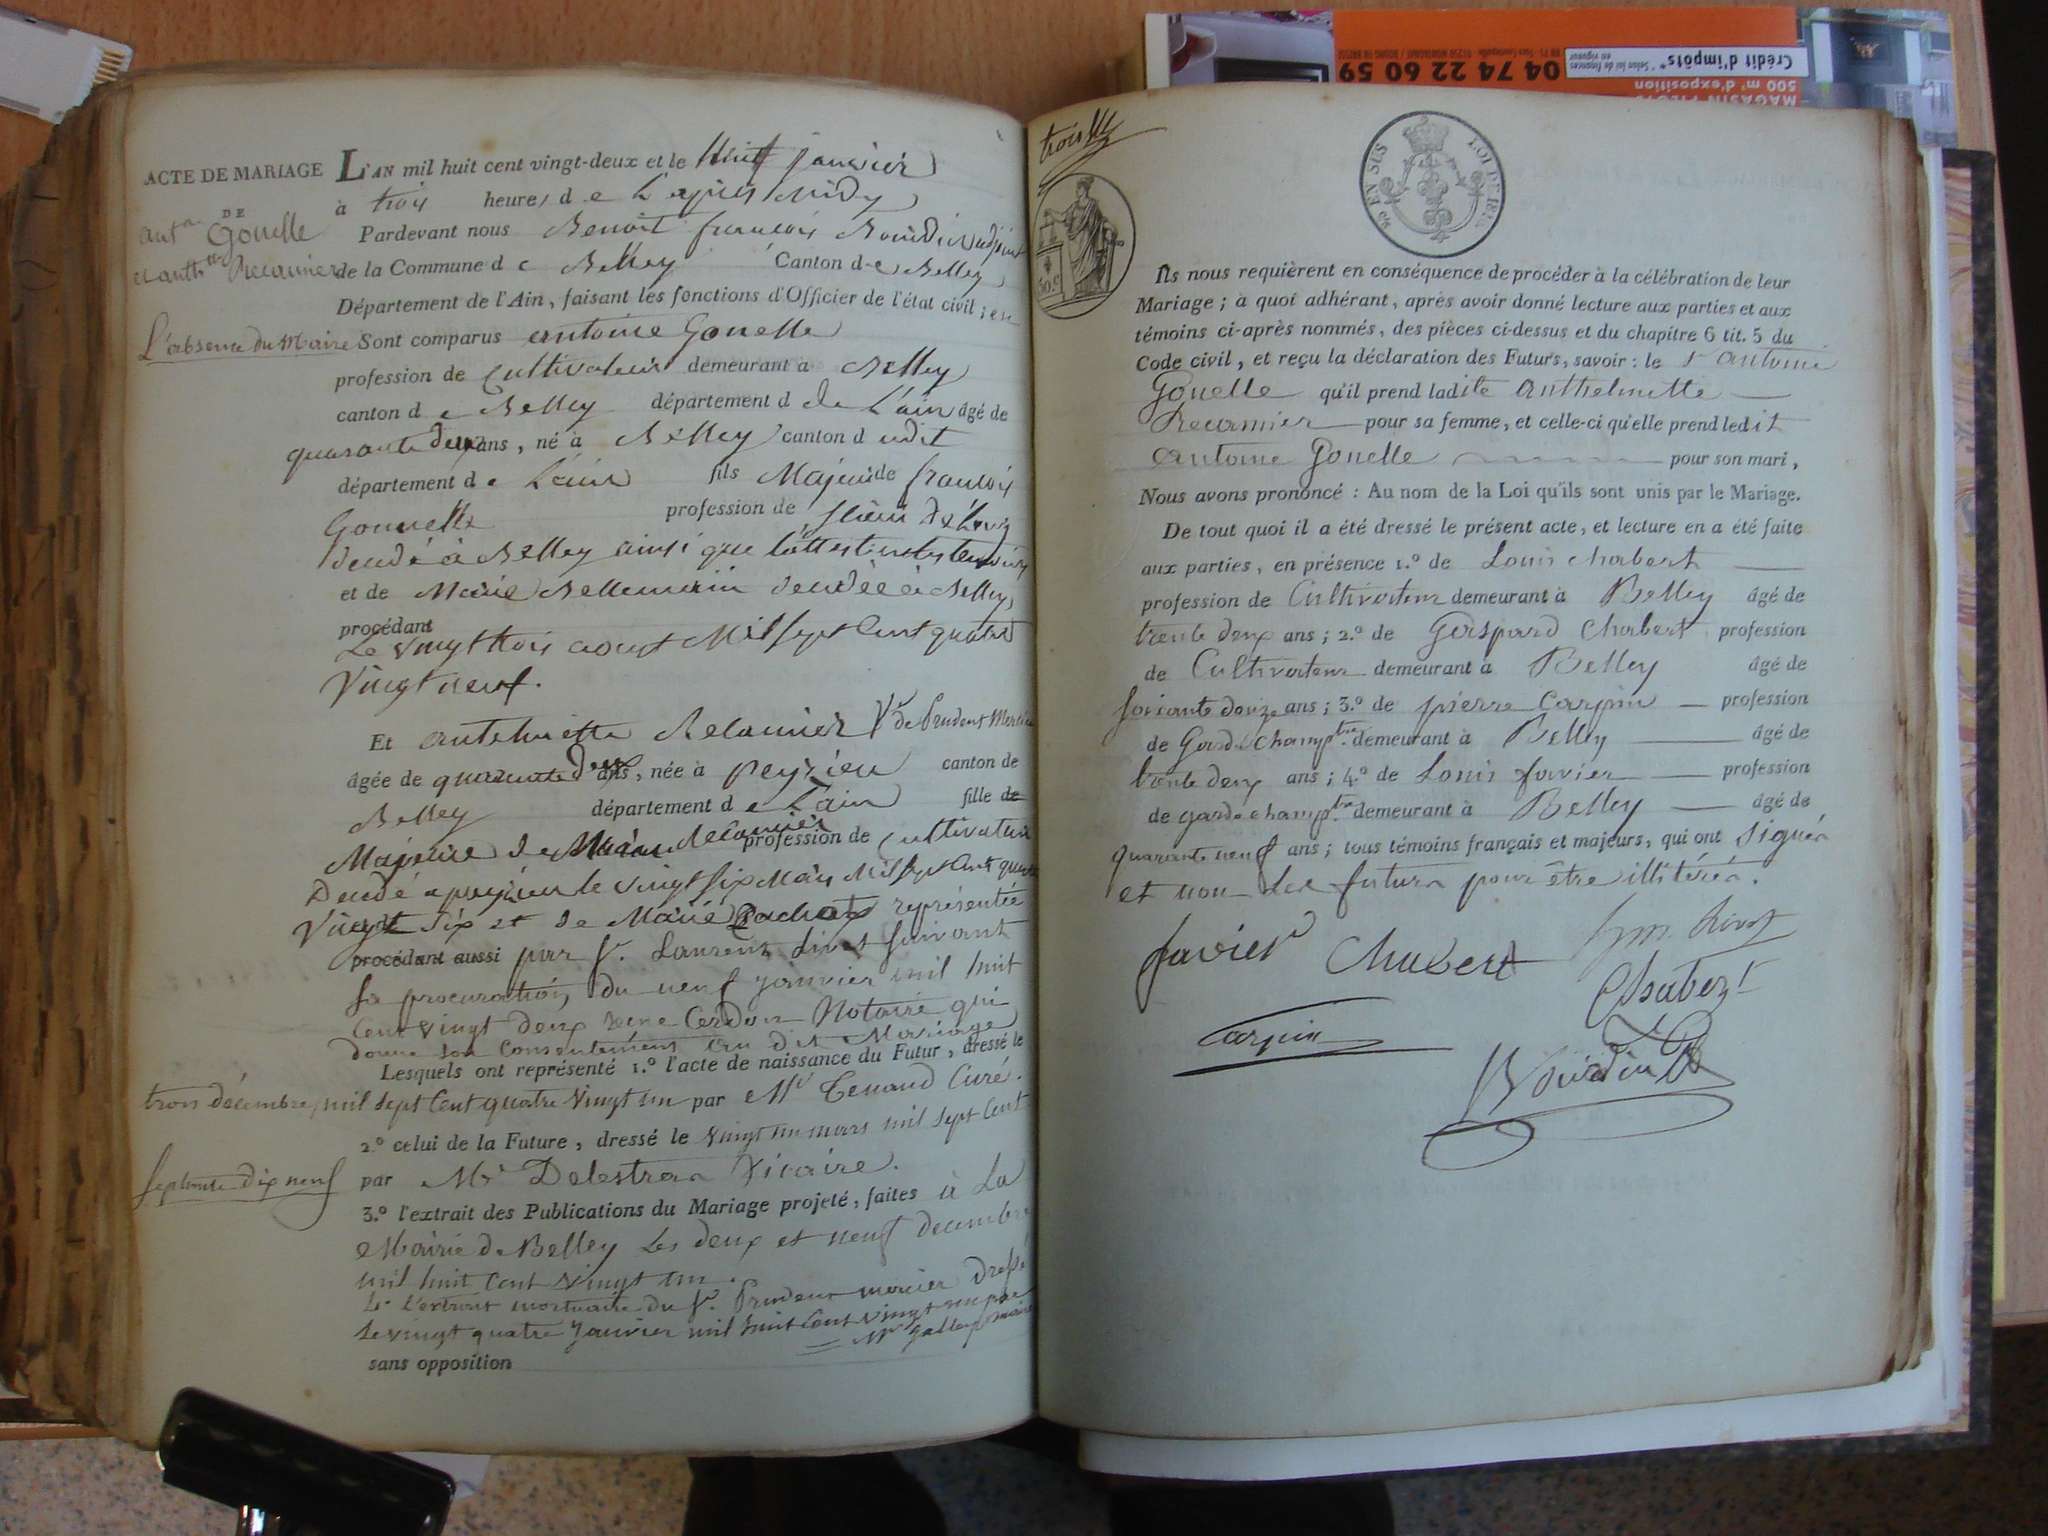 ACTE DE MARIAGE
DE
Gouelle
L'AN mil huit cent vingt-deux et le huit janvier
à trois heures d e L'après Midy
Pardevant nous Benoit françois Bourdin adjoint
de la Commune d e Belley Canton d e Belley
Département de l'Ain, faisant les fonctions d'Officier de l'état civil ; en
L'absence du Maire Sont comparus antoine Gouelle
profession de Cultivateur demeurant à Belley
canton d e Belley département d de L'ain âgé de
quarante deux ans, né à Belley canton d udit
département d e L'ain fils Majeur de francois
Gouuelle profession de
décédé à Belley ainsi que l'attestent les temoins
et de Marie Bellemain décédée à Belley
procédant
Le vingt trois aoust Mil sept Cent quatre
Vingt neuf.
Et antelmette Recamier Ve de Prudent Mercier
âgée de quarante deux ans, née à peyzieu canton de
Belley département d e L'ain fille de
Majeure de Recamier profession de cultivateur
Decedé a peyzieu le vingt six Mars Mil sept Cent quatre
Vingt six et de Marie représentée
procédant aussi par Sr. Laurent Livet suivant
sa procuration du neuf janvier mil huit
Cent vingt deux Cerdon Notaire qui
donne son consentement au dit Mariage
Lesquels ont représenté 1.º l'acte de naissance du Futur, dressé le
trois décembre, mil sept Cent quatre vingt un par Mr Tenand Curé.
2.º celui de la Future, dressé le vingt un mars mil sept Cent
septante dix neuf par Mr Delestra Vicaire.
3.º l'extrait des Publications du Mariage projeté, faites à La
Mairie de Belley Les deux et neuf decembre
mil huit cent vingt un.
4º L'extrait mortuaire du Sr. Prudent mercier dressé
le vingt quatre janvier mil huit Cent vingt un par
Mr maire
sans opposition
trois
50.c
EN SUS
LOI DE 1816
Ils nous requièrent en conséquence de procéder à la célébration de leur
Mariage ; à quoi adhérant, après avoir donné lecture aux parties et aux
témoins ci-après nommés, des pièces ci-dessus et du chapitre 6 tit. 5 du
Code civil, et reçu la déclaration des Futurs, savoir : le Sr antoine
Gouelle qu'il prend ladite anthelmette
Recamier pour sa femme, et celle-ci qu'elle prend ledit
antoine Gouelle pour son mari,
Nous avons prononcé : Au nom de la Loi qu'ils sont unis par le Mariage.
De tout quoi il a été dressé le présent acte, et lecture en a été faite
aux parties, en présence 1.º de Louis Chabert
profession de Cultivateur demeurant à Belley âgé de
trente deux ans ; 2.º de Gaspard Chabert profession
de Cultivateur demeurant à Belley âgé de
soixante douze ans ; 3.º de pierre Carpin profession
de Garde Champtre demeurant à Belley âgé de
trente deux ans ; 4.º de Louis favier profession
de garde champtre demeurant à Belley âgé de
quarante neuf ans ; tous témoins français et majeurs, qui ont signés
et non Les futurs pour être illitérés.
favier Chabert
Chabert
Carpin
Bourdin
MAGASIN
500 m² d'exposition
Crédit d'impôts*
*Selon loi de finances
en vigueur
04 74 22 60 59